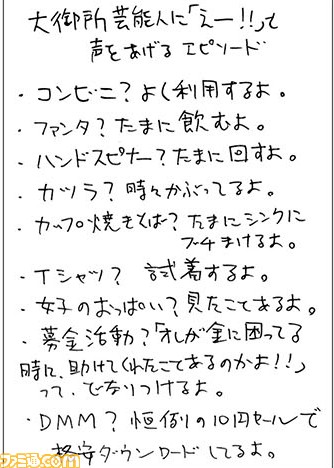 大御所芸能人に「えー!!」って
声をあげるエピソード
・コンビニ?よく利用するよ。
・ファンタ?たまに飲むよ。
・ハンドスピナー?たまに回すよ。
・カツラ?時々かぶってるよ。
・カップ焼きそば?たまにシンクに
ブチまけるよ。
・Tシャツ?試着するよ。
・女子のおっぱい?見たことあるよ。
・募金活動?「オレが金に困ってる
時に、助けてくれたことあるのかよ!!」
って、どなりつけるよ。
・DMM?恒例の10円セールで
格安ダウンロードしてるよ。
ファミ通.com